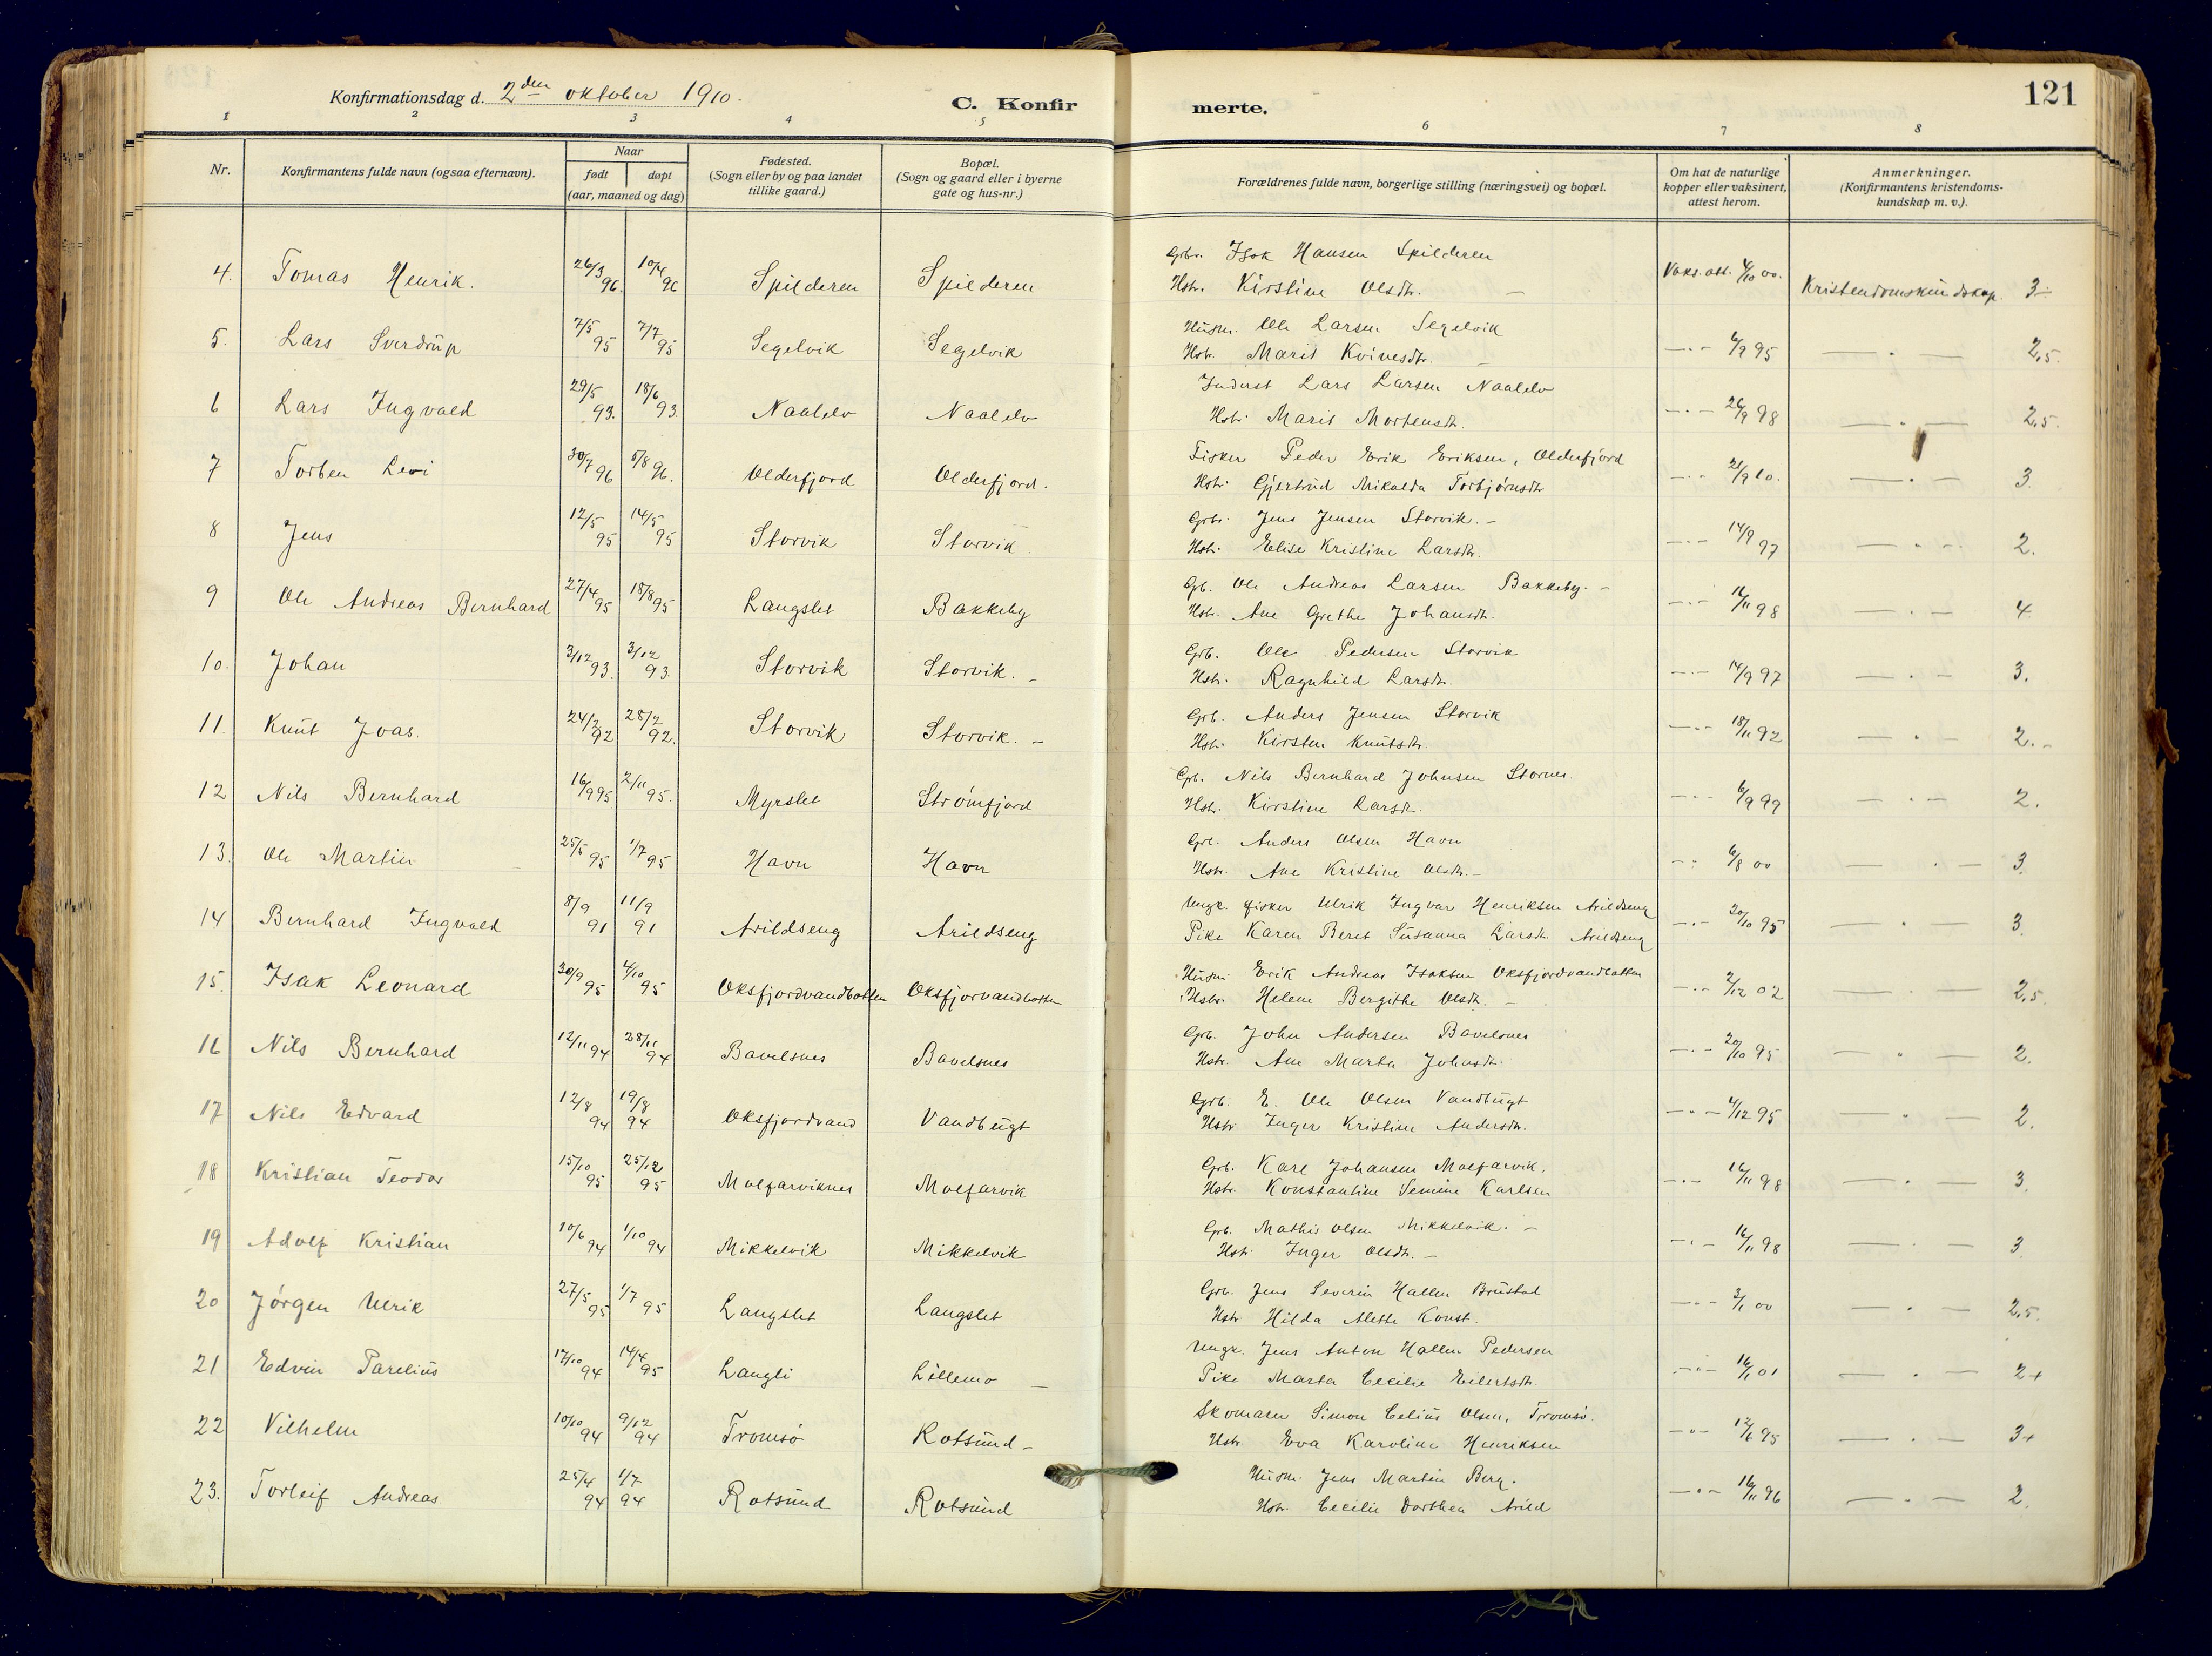 Konfirmationsdag d. 2den oktober 1910.
C. Konfirmerte.
121
1 2 3 4 5 6 7 8
Nr.
Konfirmantens fulde navn (ogsaa efternavn).
Naar
født døpt
(aar, maaned og dag)
Fødested.
(Sogn eller by og paa landet
tillike gaard.)
Bopæl.
(Sogn og gaard eller i byerne
gate og hus-nr.)
Forældrenes fulde navn, borgerlige stilling (næringsvei) og bopæl.
Om hat de naturlige
kopper eller vaksinert,
attest herom.
Anmerkninger.
(Konfirmantens kristendoms-
kundskap m. v.).
4. Tomas Henrik. 26/3 96. 10/4 96 Spilderen Spilderen Grbr. Isak Hansen Spilderen
Hstr. Kirstine Olsdtr. — Vaks. att. 4/10 00. Kristendomskundskap 3-
5. Lars Sverdrup 7/5 95 7/7 95 Segelvik Segelvik Husm. Ole Larsen Segelvik
Hstr. Marit Kvinesdtr. — —.- 6/9 95 — . — 2,5.
6 Lars Ingvald 29/5 93. 18/6 93. Naalelv Naalelv Inderst Lars Larsen Naalelv
Hstr. Marit Mortensdtr. —.- 26/9 98 — . — 2,5.
7 Torben Levi 30/7 96 5/8 96. Olderfjord Olderfjord. Fisker Peder Erik Eriksen, Olderfjord
Hstr. Gjertrud Mikalda Torbjørnsdtr —.- 21/9 10. — . — 3.
8 Jens 12/5 95 14/5 95 Storvik Storvik. Grbr. Jens Jensen Storvik. -
Hstr. Elise Kristine Larsdtr. —.- 14/9 97 — . — 2.
9 Ole Andreas Bernhard 27/4 95 18/8 95 Langslet Bakkeby Gb. Ole Andreas Larsen Bakkeby. -
Hstr. Ane Grethe Johansdtr. —.- 16/11 98 — . — 4
10. Johan 3/12 93. 3/12 93. Storvik Storvik. - Grb. Ole Pedersen Storvik
Hstr. Ragnhild Larsdtr. —.- 14/9 97 — . — 3.
11. Knut Joas. 24/2 92 28/2 92. Storvik Storvik. - Grb. Anders Jensen Storvik
Hstr. Kirsten Knutsdtr. —.- 18/11 92 — . — 2.-
12 Nils Bernhard 16/9 95 2/11 95. Myrslet Strømfjord Grb. Nils Bernhard Johnsen Stornes.
Hstr. Kirstine Larsdtr. —.- 6/9 99 — . — 2.
13. Ole Martin 25/5 95 1/7 95 Havn Havn Grb. Anders Olsen Havn
Hstr. Ane Kristine Olsdtr. - —.- 6/8 00 — . — 3.
14 Bernhard Ingvald 8/9 91 11/9 91 Arildseng Arildseng Ungk. fisker Ulrik Ingvar Henriksen Arildseng
Pike Karen Beret Susanna Larsdtr. Arildseng —.- 20/10 95 — . — 3.
15. Isak Leonard 30/9 95 4/10 95 Oksfjordvandbotten Oksfjorvandbotten Husm. Erik Andreas Isaksen Oksfjordvandbotten
Hstr. Helene Bergithe Olsdtr. — —.- 2/12 02 — . — 2,5.
16 Nils Bernhard 12/11 94 28/11 94 Bavelsnes Bavelsnes Grb. John Andersen Bavelsnes
Hstr. Ane Marta Johnsdtr. —.- 20/10 95 — . — 2.
17 Nils Edvard 12/8 94 19/8 94 Oksfjordvand Vandbugt Grb. E. Ole Olsen Vandbugt
Hstr. Inger Kristine Andersdtr. —.- 4/12 95 — . — 2.
18 Kristian Teodor 15/10 95 25/12 95 Molfarviknes Molfarvik Grb. Karl Johansen Molfarvik.
Hstr. Konstantine Semine Karlsen —.- 16/11 98 — . — 3.
19 Adolf Kristian 10/6 94 1/10 94 Mikkelvik Mikkelvik Grb. Mathis Olsen Mikkelvik. -
Hstr. Inger Olsdtr. - —.- 16/11 98 — . — 3.
20 Jørgen Ulrik 27/5 95 1/7 95 Langslet Langslet Grb. Jens Severin Hallen Brustad
Hstr Hilda Alette Konst. —.- 2/1 00 — . — 2,5.
21 Edvin Parelius 17/10 94 14/4 95 Langli Lillemo — Ungk. Jens Anton Hallen Pedersen
Pike Marta Cecilie Eilertsdtr. —.- 16/1 01 — . — 2+
22 Vilhelm 10/10 94 9/12 94 Tromsø Rotsund - Skomaker Simon Celius Olsen, Tromsø.
Hstr. Eva Karoline Henriksen —.- 12/6 95 — . — 3+
23. Torleif Andreas 25/4 94 1/7 94 Rotsund Rotsund Husm. Jens Martin Berg.
Hstr. Cecilie Dorthea Arild —.- 16/11 96 — . — 2.